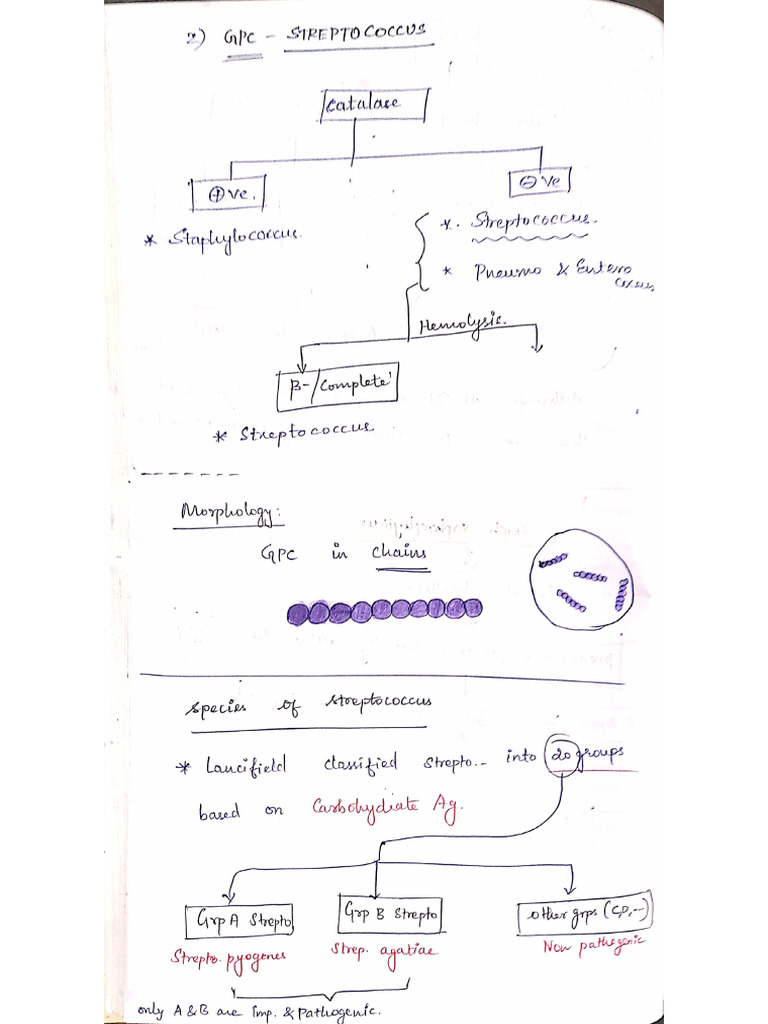 2) GPC - STREPTOCOCCUS
Catalase
⊕ve.
⊖ve
* Staphylococcus.
*. Streptococcus.
* Pneumo & Entero
coccus,
Hemolysis.
β-/Complete'
* Streptococcus
Morphology:
GPC in chains
Species of Streptococcus
* Lancifield classified Strepto.- into 20 groups
based on Carbohydrate Ag.
Grp A Strepto
Grp B Strepto
other grps (C,D,--)
Strepto. pyogenes
Strep. agatiae
Non pathogenic
only A & B are Imp. & Pathogenic.